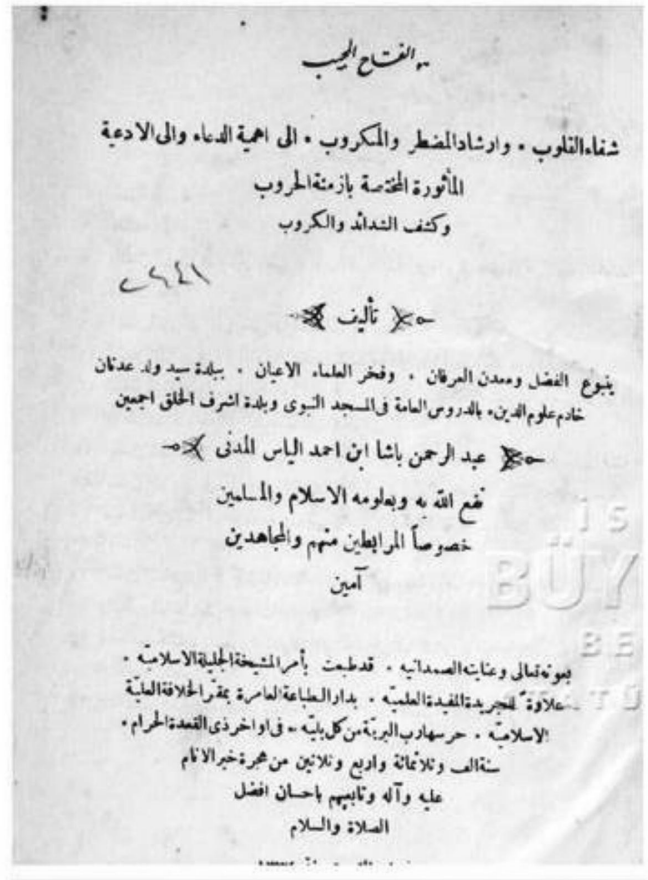 الفتاح المجيب
شفاء القلوب • وارشاد المضطر والمكروب • الى اهمية الدعاء والى الادعية
المأثورة المختصة بازمنة الحروب
وكشف الشدائد والكروب
تأليف
ينبوع الفضل ومعدن العرفان • وفخر العلماء الاعيان • ببلدة سيد ولد عدنان
خادم علوم الدين، بالدروس العامة فى المسجد النبوى وبلدة اشرف الخلق اجمعين
عبد الرحمن باشا ابن احمد الياس المدنى
نفع الله به وبعلومه الاسلام والمسلمين
خصوصاً المرابطين منهم والمجاهدين
آمين
بعونه تعالى وعنايته الصمدانيه • قد طبعت بأمر المشيخة الجليلة الاسلاميه •
علاوة للجريدة المفيدة العلميه • بدار الطباعة العامرة بمقر الخلافة العلية
الاسلاميه • حرسها رب البرية من كل بليه •• فى اواخر ذى القعدة الحرام •
سنة الف وثلاثمائة واربع وثلاثين من هجرة خير الانام
عليه وآله وتابعيهم باحسان افضل
الصلاة والسلام
İS
BÜY
BE
ATATÜ